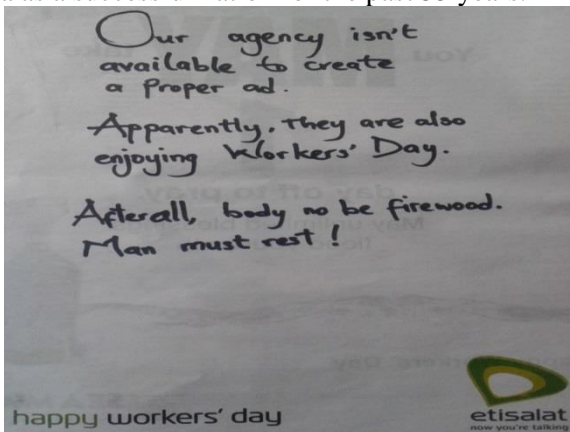 Our agency isn't
available to create
a Proper ad.
Apparently, They are also
enjoying Workers' Day.
Afterall, body no be firewood.
Man must rest!
happy workers' day
etisalat
now you're talking